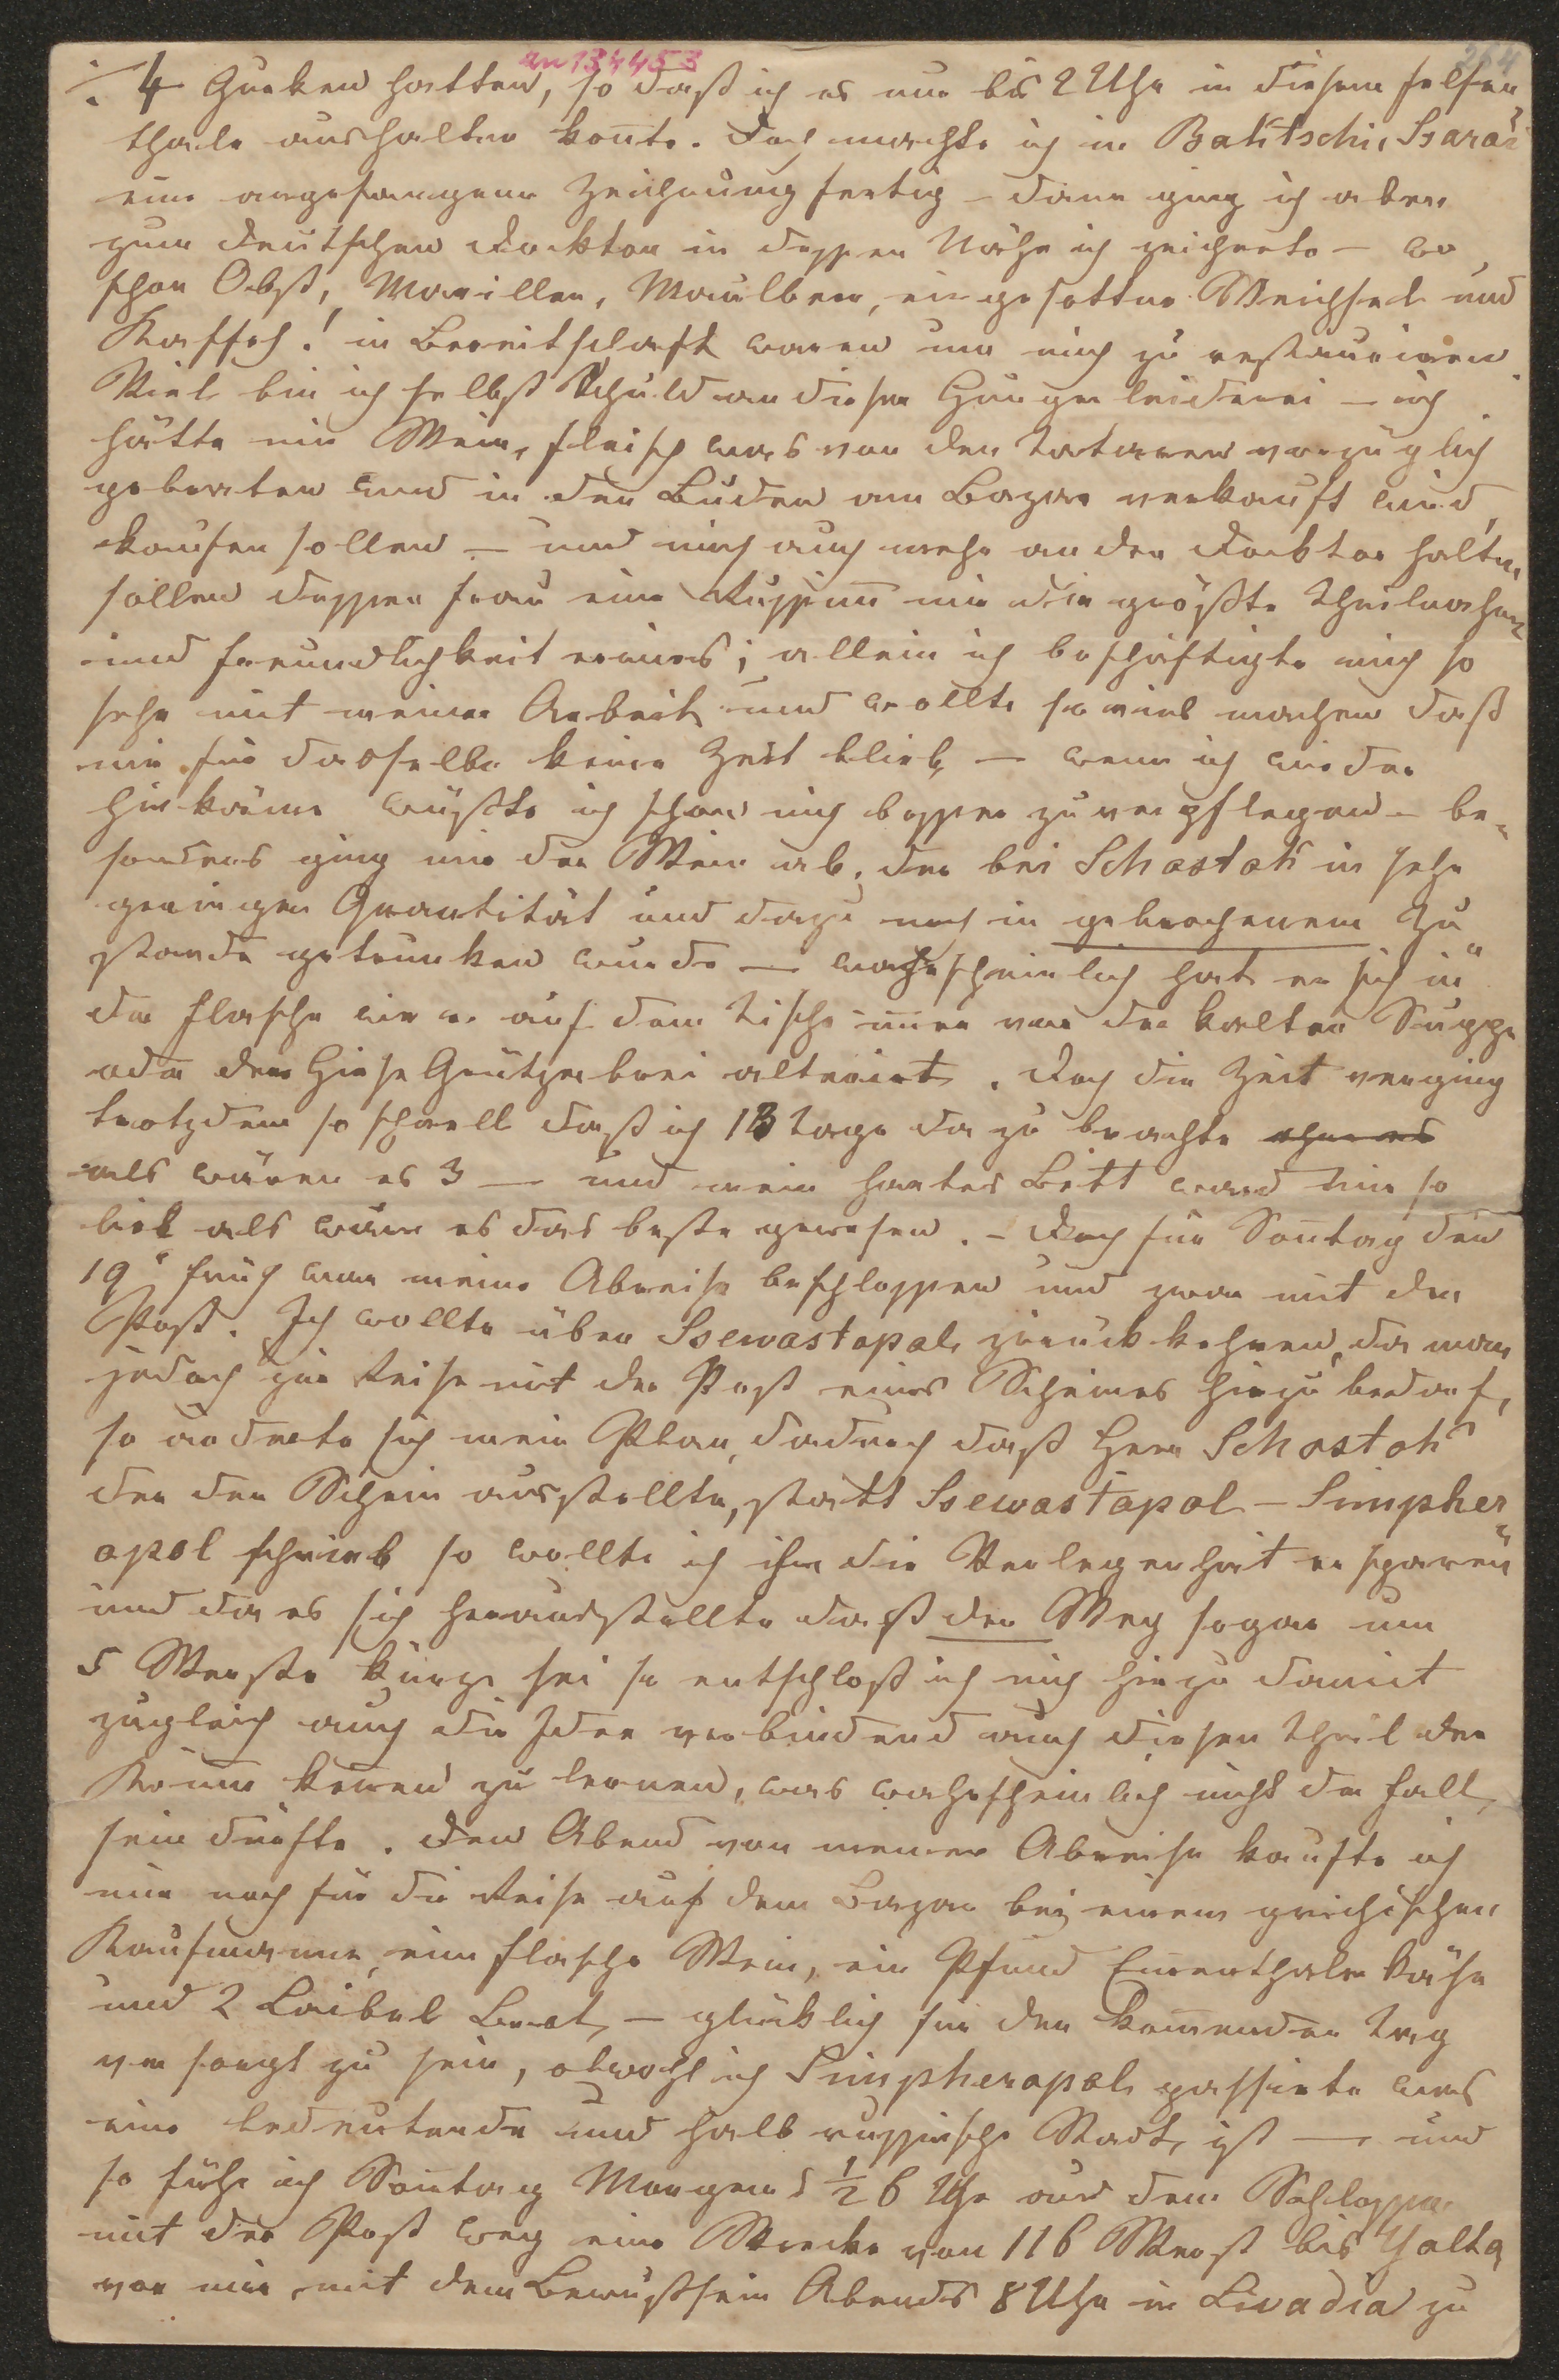 an 134453
254
÷ 4 Gurken hatten, so daß ich es nur bis 2 Uhr in diesem Felsen¬
thale aushalten konnte. Doch machte ich in Baktschi, Ssarai
eine angefangene Zeichnung fertig – dann ging ich aber
zum deutschen Docktor in dessen Nähe ich zeichnete – wo
schon Obst, Marillen, Maulbeer, eingesottne Weichsel und
Kaffeh! in Bereitschaft waren um mich zu restauriren
Viel bin ich selbst Schuld an dieser Hungerleiderei – ich
hätte mir Wein, Fleisch was von den Tataren vorzüglich
gebraten und in den Buden am Bazar verkauft wird
kaufen sollen – und mich auch mehr an den Docktor halten
sollen dessen Frau eine Russin mir die größte Theilnahme
und Freundlichkeit erwies; allein ich beschäftigte mich so
sehr mit meiner Arbeit und wollte so viel machen daß
mir für dasselbe keine Zeit blieb, – wenn ich wieder
hinkäme wüßte ich schon mich besser zu verpflegen – be¬
sonders ging mir der Wein ab, der bei Schostak in sehr
geringer Quantität und dazu noch in gebrochenem Zu¬
stande getrunken wurde – wahrscheinlich hat er sich in
der Flasche wie er auf dem Tische immer vor der kalten Suppe
oder dem Hirse Grützenbrei alterirt. Doch die Zeit verging
trotzdem so schnell daß ich 13 Tage da zu brachte ohne es
als wären es 3 – und mein hartes Bett ward mir so
lieb als wäre es das beste gewesen. – Doch für Sontag den
19t früh war meine Abreise beschlossen und zwar mit der
Post. Ich wollte über Ssewastopol zurückkehren, da man
jedoch zur Reise mit der Post eines Scheines hiezu bedarf,
so änderte sich mein Plan, dadurch daß Herr Schostak
der den Schein ausstellte, statt Ssewastopol – Simpher¬
opol schrieb so wollte ich ihm die Verlegenheit ersparen
und da es sich herausstellte daß der Weg sogar um
5 Werste kürzer sei so entschloß ich mich hiezu damit
zugleich auch die Idee verbindend auch diesen Theil der
Krimm kennen zu lernen, was wahrscheinlich nicht der Fall
sein dürfte. Den Abend vor meiner Abreise kaufte ich
mir noch für die Reise auf dem Bazar bei einem grichischen
Kaufmanne, eine Flasche Wein, ein Pfund Emmenthaler Käse
und 2 Laibel Brot, – glücklich für den kommenden Tag
versorgt zu sein, obwohl ich Simpheropol passirte was
eine bedeutende und halb russische Stadt, ist – und
so fuhr ich Sontag Morgens ½ 6 Uhr aus dem Schlosse
mit der Post weg eine Strecke von 116 Werst bis Yalta
vor mir, mit dem Bewußtsein Abends 8 Uhr in Livadia zu